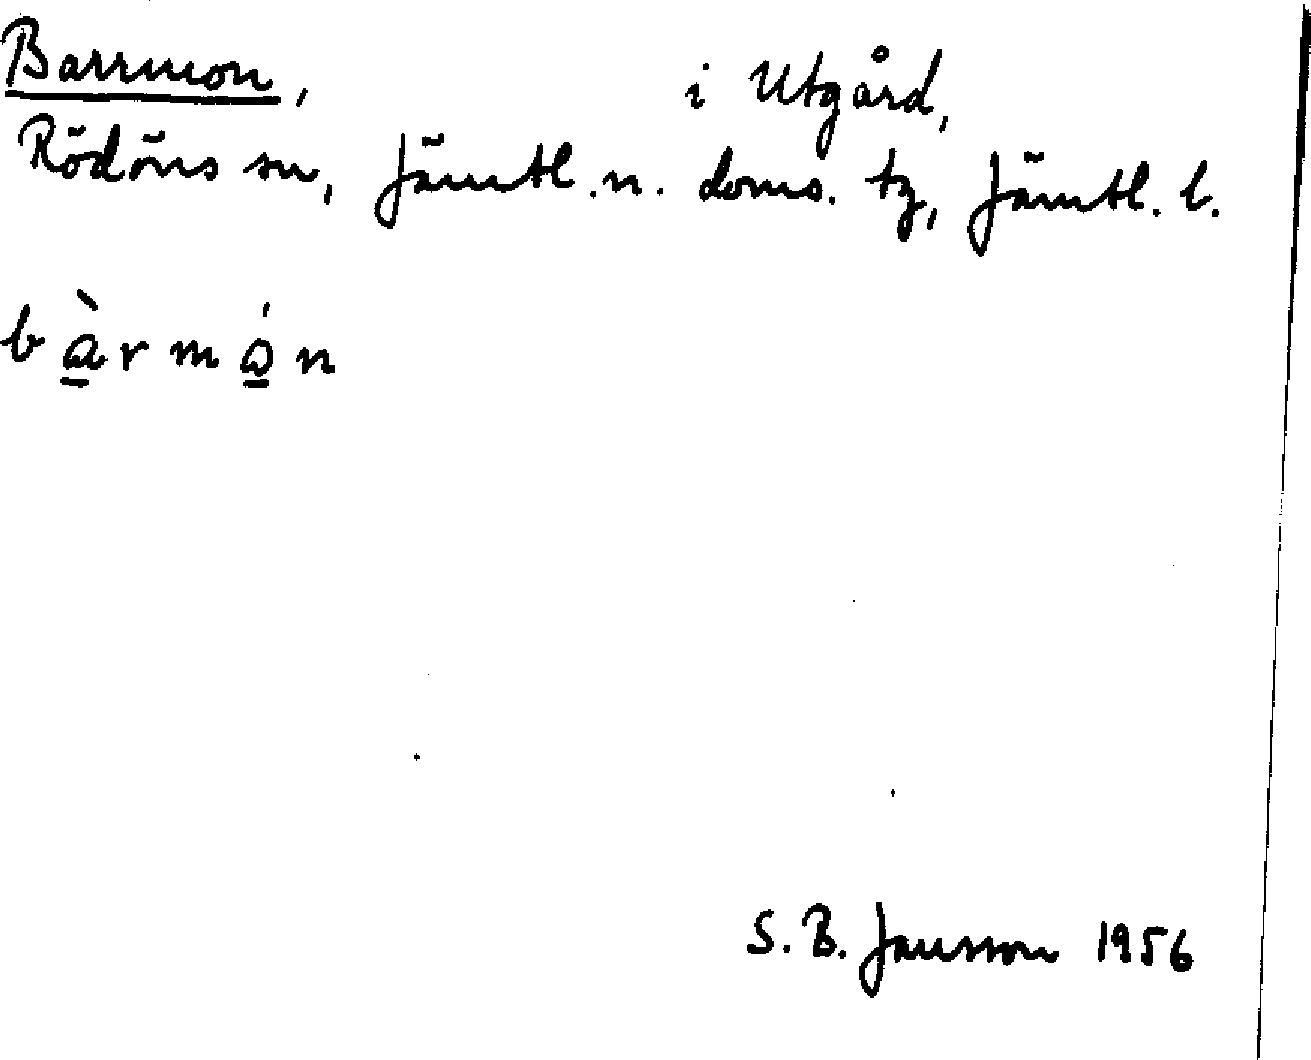 Barrmon, i Utgård,
Rödöns sn, Jämtl. n. doms. tg, Jämtl. l.
bà̱rmó̱n
S. B. Jansson 1956